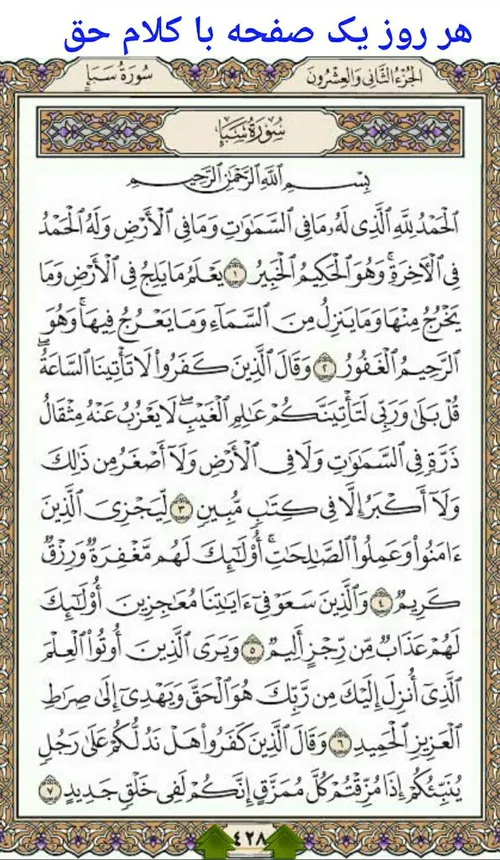 هر روز یک صفحه با کلام حق
الجُزءُ الثَّانِي وَالعِشْرُونَ
سُورَةُ سَبَإٍ
سُورَةُ سَبَإٍ
بِسْمِ ٱللَّهِ ٱلرَّحْمَٰنِ ٱلرَّحِيمِ
ٱلْحَمْدُ لِلَّهِ ٱلَّذِى لَهُۥ مَا فِى ٱلسَّمَٰوَٰتِ وَمَا فِى ٱلْأَرْضِ وَلَهُ ٱلْحَمْدُ
فِى ٱلْءَاخِرَةِ ۚ وَهُوَ ٱلْحَكِيمُ ٱلْخَبِيرُ ١ يَعْلَمُ مَا يَلِجُ فِى ٱلْأَرْضِ وَمَا
يَخْرُجُ مِنْهَا وَمَا يَنزِلُ مِنَ ٱلسَّمَآءِ وَمَا يَعْرُجُ فِيهَا ۚ وَهُوَ
ٱلرَّحِيمُ ٱلْغَفُورُ ٢ وَقَالَ ٱلَّذِينَ كَفَرُوا۟ لَا تَأْتِينَا ٱلسَّاعَةُ ۖ
قُلْ بَلَىٰ وَرَبِّى لَتَأْتِيَنَّكُمْ عَٰلِمِ ٱلْغَيْبِ ۖ لَا يَعْزُبُ عَنْهُ مِثْقَالُ
ذَرَّةٍ فِى ٱلسَّمَٰوَٰتِ وَلَا فِى ٱلْأَرْضِ وَلَآ أَصْغَرُ مِن ذَٰلِكَ
وَلَآ أَكْبَرُ إِلَّا فِى كِتَٰبٍ مُّبِينٍ ٣ لِّيَجْزِىَ ٱلَّذِينَ
ءَامَنُوا۟ وَعَمِلُوا۟ ٱلصَّٰلِحَٰتِ ۚ أُو۟لَٰٓئِكَ لَهُم مَّغْفِرَةٌ وَرِزْقٌ
كَرِيمٌ ٤ وَٱلَّذِينَ سَعَوْ فِىٓ ءَايَٰتِنَا مُعَٰجِزِينَ أُو۟لَٰٓئِكَ
لَهُمْ عَذَابٌ مِّن رِّجْزٍ أَلِيمٌ ٥ وَيَرَى ٱلَّذِينَ أُوتُوا۟ ٱلْعِلْمَ
ٱلَّذِىٓ أُنزِلَ إِلَيْكَ مِن رَّبِّكَ هُوَ ٱلْحَقَّ وَيَهْدِىٓ إِلَىٰ صِرَٰطِ
ٱلْعَزِيزِ ٱلْحَمِيدِ ٦ وَقَالَ ٱلَّذِينَ كَفَرُوا۟ هَلْ نَدُلُّكُمْ عَلَىٰ رَجُلٍ
يُنَبِّئُكُمْ إِذَا مُزِّقْتُمْ كُلَّ مُمَزَّقٍ إِنَّكُمْ لَفِى خَلْقٍ جَدِيدٍ ٧
٤٢٨